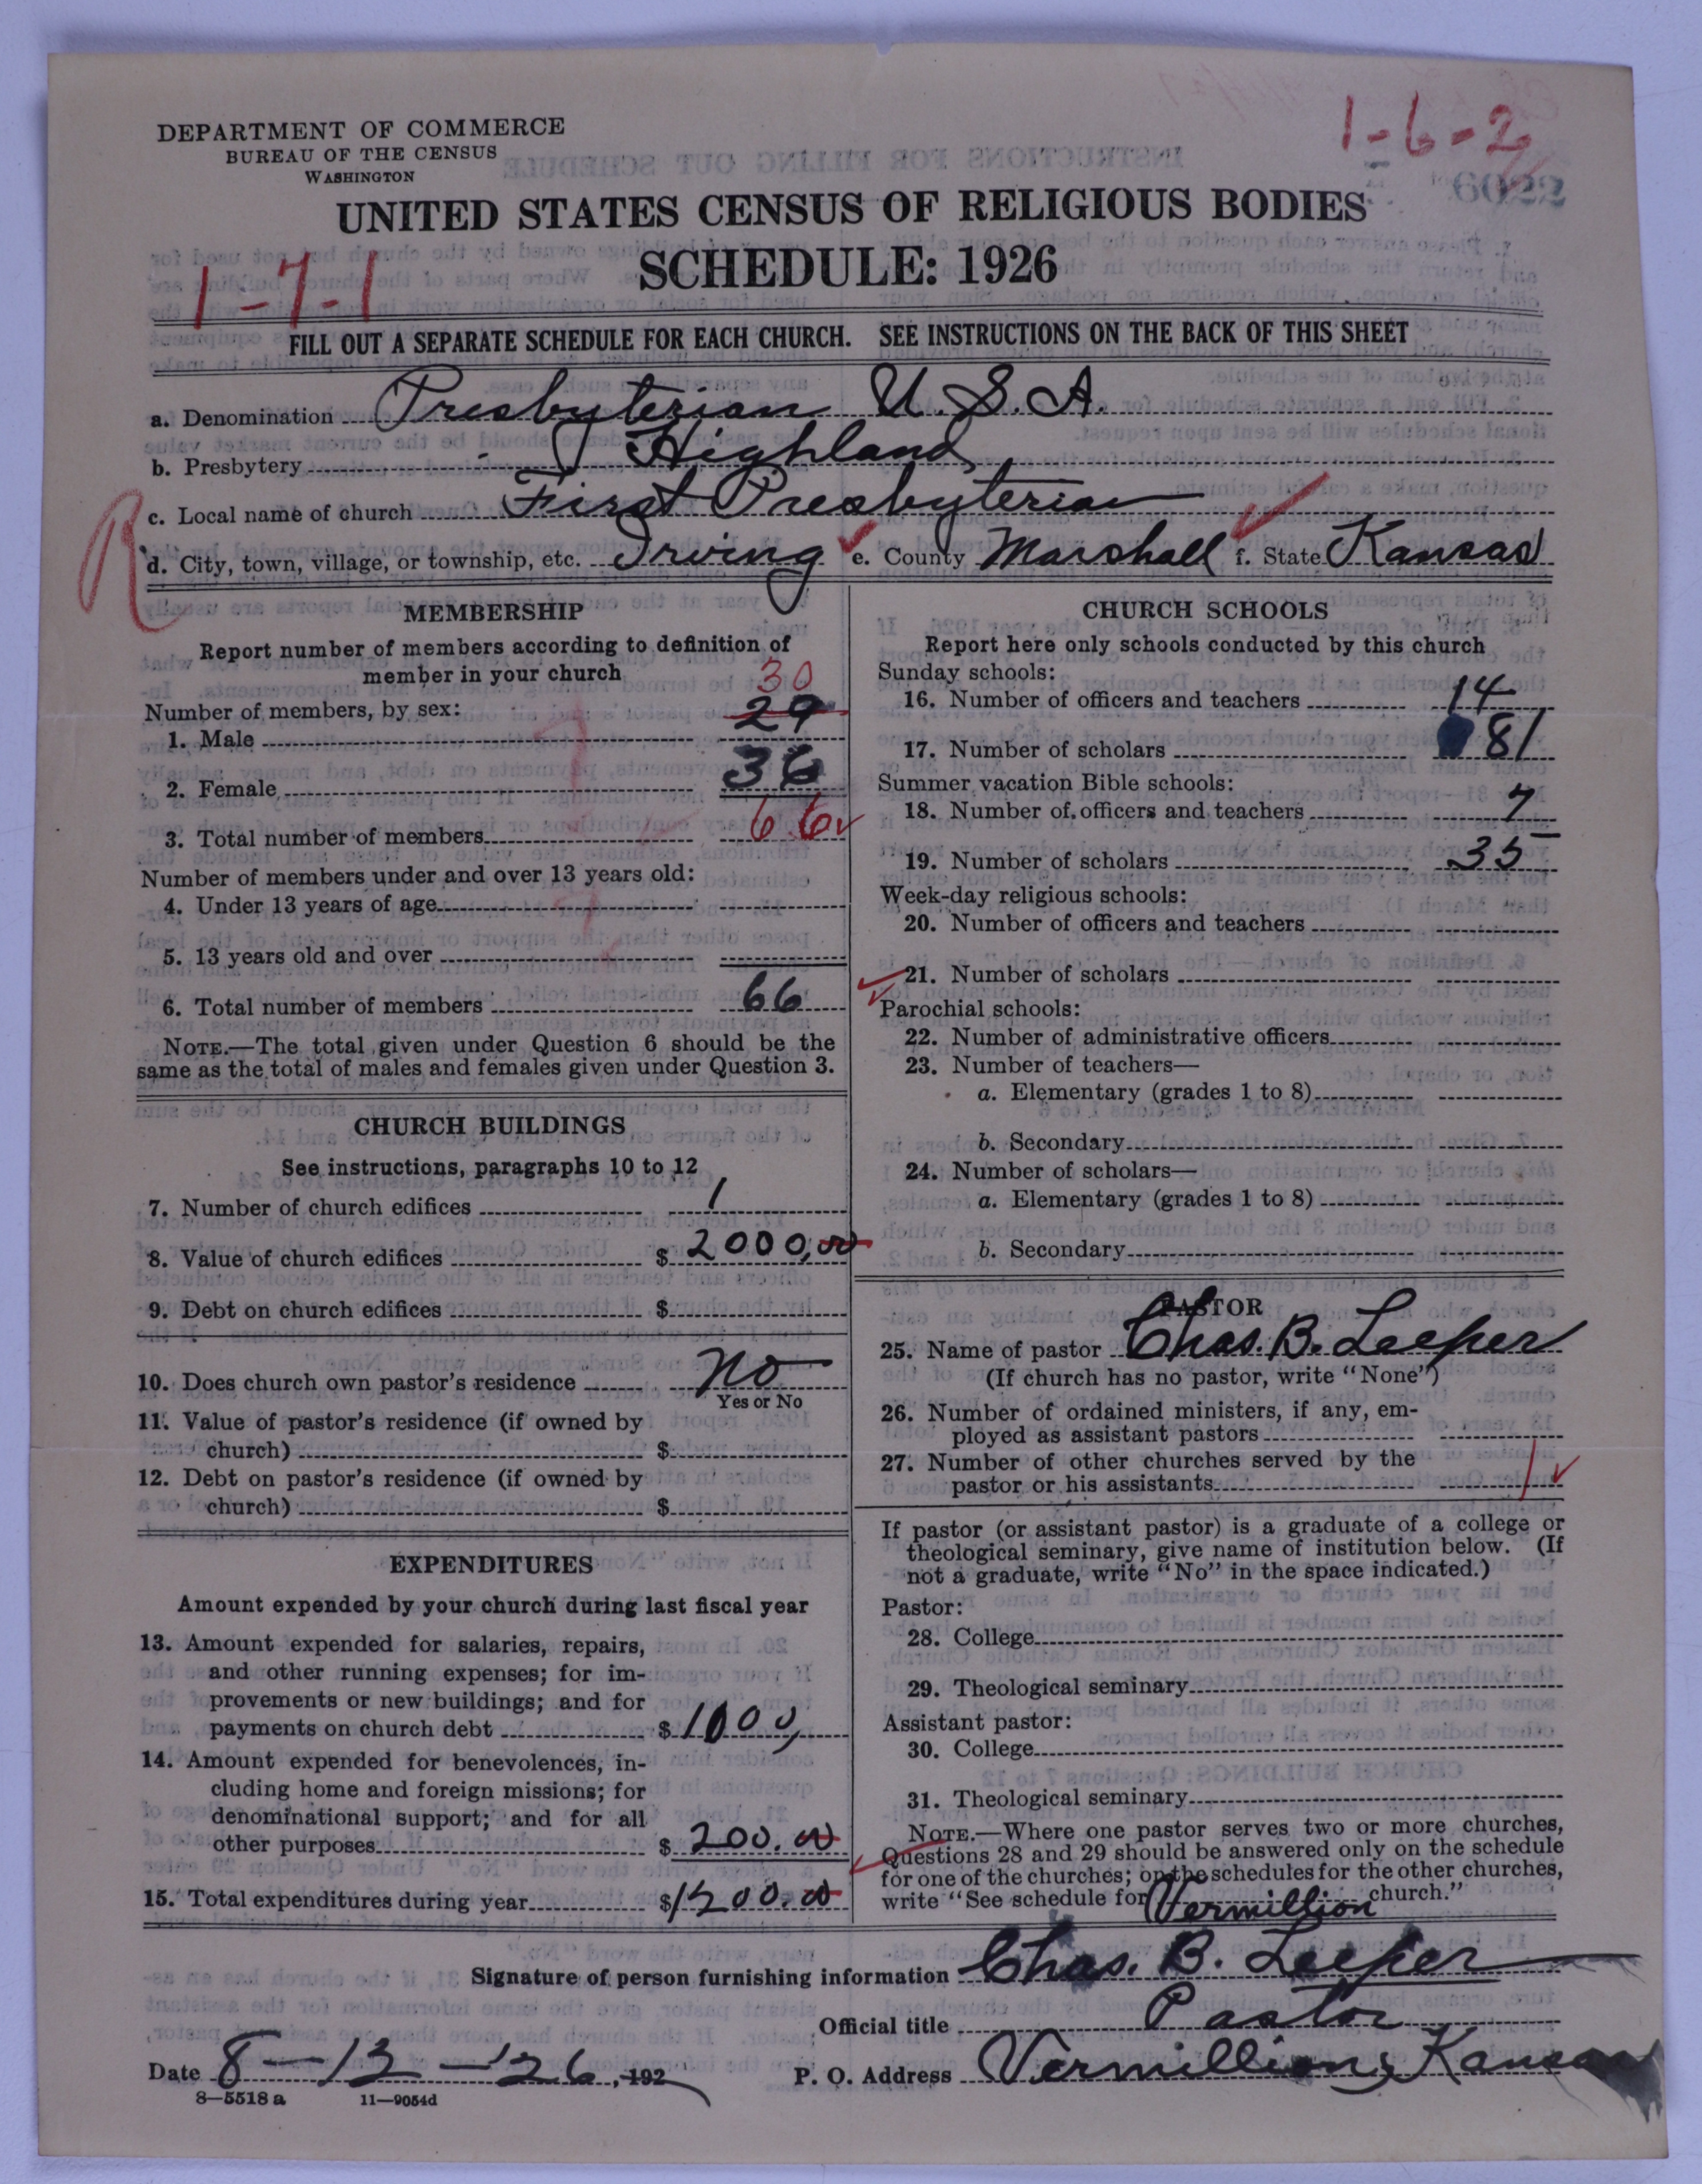 1-6-2
DEPARTMENT OF COMMERCE
BUREAU OF THE CENSUS
WASHINGTON
UNITED STATES CENSUS OF RELIGIOUS BODIES
SCHEDULE: 1926
1-7-1
FILL OUT A SEPARATE SCHEDULE FOR EACH CHURCH. SEE INSTRUCTIONS ON THE BACK OF THIS SHEET
a. Denomination Presbyterian U.S.A.
b. Presbytery Highland
c. Local name of church First Presbyterian
R
d. City, town, village, or township, etc. Irving e. County Marshall f. State Kansas
MEMBERSHIP
Report number of members according to definition of
member in your church
30
Number of members, by sex:
1. Male 29
2. Female 36
3. Total number of members 66
Number of members under and over 13 years old:
4. Under 13 years of age
5. 13 years old and over
6. Total number of members 66
NOTE.—The total given under Question 6 should be the
same as the total of males and females given under Question 3.
CHURCH BUILDINGS
See instructions, paragraphs 10 to 12
7. Number of church edifices 1
8. Value of church edifices $ 2000,00
9. Debt on church edifices $
10. Does church own pastor's residence No
Yes or No
11. Value of pastor's residence (if owned by
church) $
12. Debt on pastor's residence (if owned by
church) $
EXPENDITURES
Amount expended by your church during last fiscal year
13. Amount expended for salaries, repairs,
and other running expenses; for im-
provements or new buildings; and for
payments on church debt $ 1000,
14. Amount expended for benevolences, in-
cluding home and foreign missions; for
denominational support; and for all
other purposes $ 200.00
15. Total expenditures during year $ 1200.00
CHURCH SCHOOLS
Report here only schools conducted by this church
Sunday schools:
16. Number of officers and teachers 14
17. Number of scholars 81
Summer vacation Bible schools:
18. Number of officers and teachers 7
19. Number of scholars 35
Week-day religious schools:
20. Number of officers and teachers
21. Number of scholars
Parochial schools:
22. Number of administrative officers
23. Number of teachers—
a. Elementary (grades 1 to 8)
b. Secondary
24. Number of scholars—
a. Elementary (grades 1 to 8)
b. Secondary
PASTOR
25. Name of pastor Chas. B. Leeper
(If church has no pastor, write "None")
26. Number of ordained ministers, if any, em-
ployed as assistant pastors
27. Number of other churches served by the
pastor or his assistants 1
If pastor (or assistant pastor) is a graduate of a college or
theological seminary, give name of institution below. (If
not a graduate, write "No" in the space indicated.)
Pastor:
28. College
29. Theological seminary
Assistant pastor:
30. College
31. Theological seminary
NOTE.—Where one pastor serves two or more churches,
Questions 28 and 29 should be answered only on the schedule
for one of the churches; on the schedules for the other churches,
write "See schedule for Vermillion church."
Signature of person furnishing information Chas. B. Leeper
Official title Pastor
Date 8-13-26, 192
P. O. Address Vermillion, Kansas
8—5518 a 11—9054d